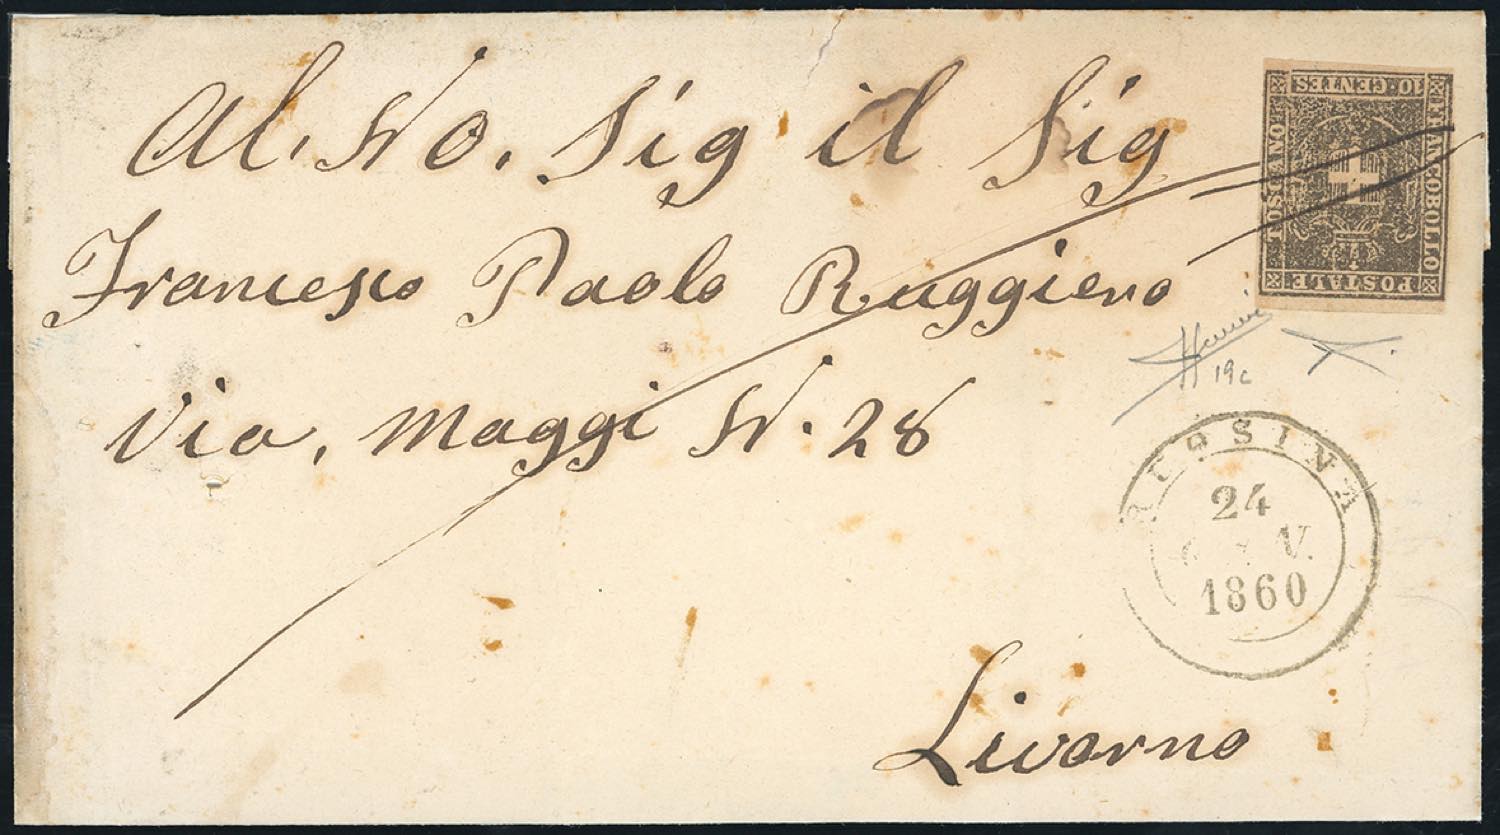 Al. No. Sig il Sig
Francesco Paolo Ruggiero
Via, Maggi N. 28
Livorno
FRANCOBOLLO
POSTALE
10 CENTES
19c
RUOSINA
24
V.
1860